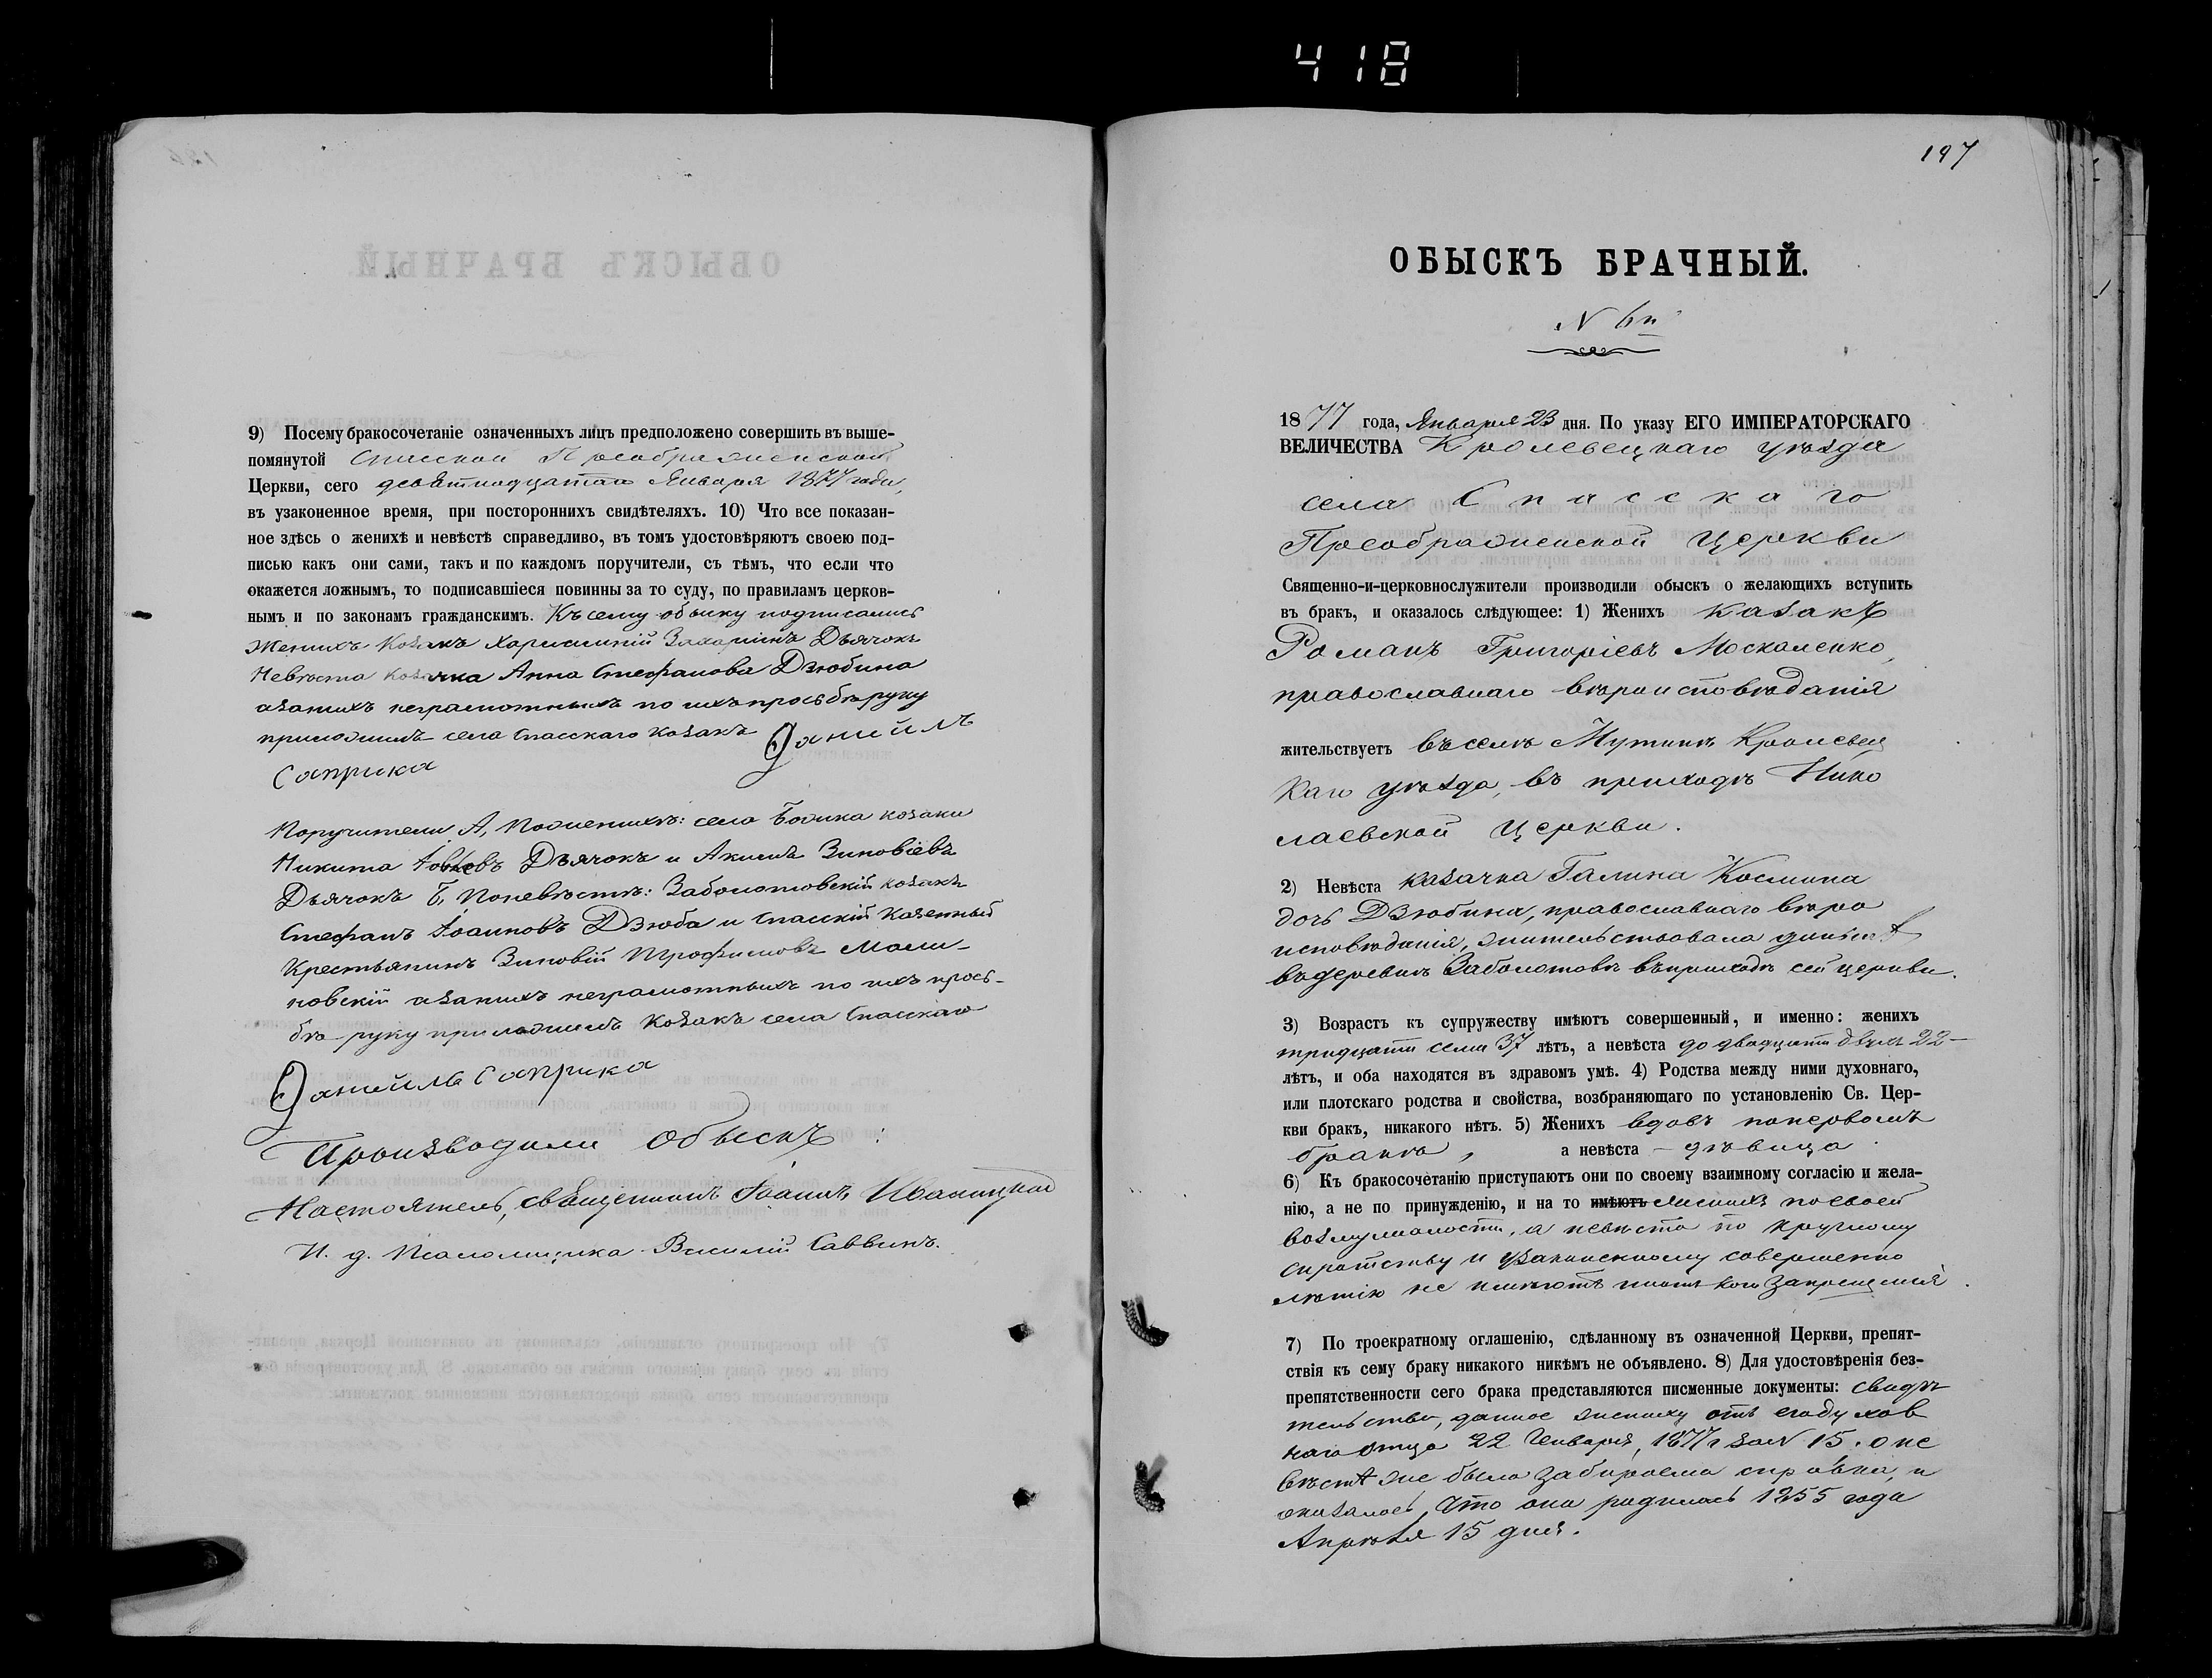 418
9) Посему бракосочетаніе означенныхъ лицъ предположено совершить въ выше-
помянутой Спасской Преображенской
Церкви, сего девятнадцатаго Января 1877 года,
въ узаконенное время, при постороннихъ свидѣтеляхъ. 10) Что все показан-
ное здѣсь о женихѣ и невѣстѣ справедливо, въ томъ удостовѣряютъ своею под-
писью какъ они сами, такъ и по каждомъ поручители, съ тѣмъ, что если что
окажется ложнымъ, то подписавшіеся повинны за то суду, по правиламъ церков-
нымъ и по законамъ гражданскимъ. Къ сему обыску подписались
Женихъ Козакъ Харлампій Захаріинъ Дьячокъ
Невѣста козачка Анна Стефанова Дзюбина
азанихъ неграмотныхъ по ихъ прозьбѣ руку
приложилъ села Спасскаго козакъ Даніилъ
Саприка
Поручители А, Поженихѣ: села Божка козаки
Никита Іовлевъ Дьячокъ и Акимъ Зиновіевъ
Дьячокъ Б, Поневѣстѣ: Заболотовскій козакъ
Стефанъ Іоанновъ Дзюба и Спасскій Казенный
Крестьянинъ Зиновій Трофимовъ Мали-
новскій азанихъ неграмотныхъ по ихъ прозь-
бѣ руку приложилъ Козакъ села Спасскаго
Даніилъ Саприка
Производили обыскъ:
Настоятель, священникъ Іоаннъ Иваницкій
И. д. Псаломщика Василій Саввинъ.
197
ОБЫСКЪ БРАЧНЫЙ.
N 6й
1877 года, Января 23 дня. По указу ЕГО ИМПЕРАТОРСКАГО
ВЕЛИЧЕСТВА Кролевецкаго уѣзда
села Спасскаго
Преображенской Церкви
Священно-и-церковнослужители производили обыскъ о желающихъ вступить
въ бракъ, и оказалось слѣдующее: 1) Женихъ казакъ
Романъ Григоріевъ Москаленко,
православнаго вѣроисповѣданія
жительствуетъ въ селѣ Мутинѣ Кролевец
каго уѣзда, въ приходѣ Нико
лаевской Церкви.
2) Невѣста казачка Галина Космина
дочь Дзюбина, православнаго вѣро
исповѣданія, жительствовала донынѣ
въ деревнѣ Заболотовѣ въ приходѣ сей церкви.
3) Возрастъ къ супружеству имѣютъ совершенный, и именно: женихъ
тридцати семи 37 лѣтъ, а невѣста до двадцати двухъ 22
лѣтъ, и оба находятся въ здравомъ умѣ. 4) Родства между ними духовнаго,
или плотскаго родства и свойства, возбраняющаго по установленію Св. Цер-
кви бракъ, никакого нѣтъ. 5) Женихъ вдовъ попервомъ
бракѣ, а невѣста – дѣвица
6) Къ бракосочетанію приступаютъ они по своему взаимному согласію и жела-
нію, а не по принужденію, и на то имѣютъ женихъ посвоей
возмужалости, а невѣста по круглому
сиротству и узаконенному совершенно
лѣтію не имѣютъ запрещенія.
7) По троекратному оглашенію, сдѣланному въ означенной Церкви, препят-
ствія къ сему браку никакого никѣмъ не объявлено. 8) Для удостовѣренія без-
препятственности сего брака представляются писменные документы: свидѣ
тельство, данное жениху отъ его духов
наго отца 22 Генваря, 1877 г за N 15. о не
вѣстѣ же была забираема справка, и
оказалось, что она родилась 1855 года
Апрѣля 15 дня.